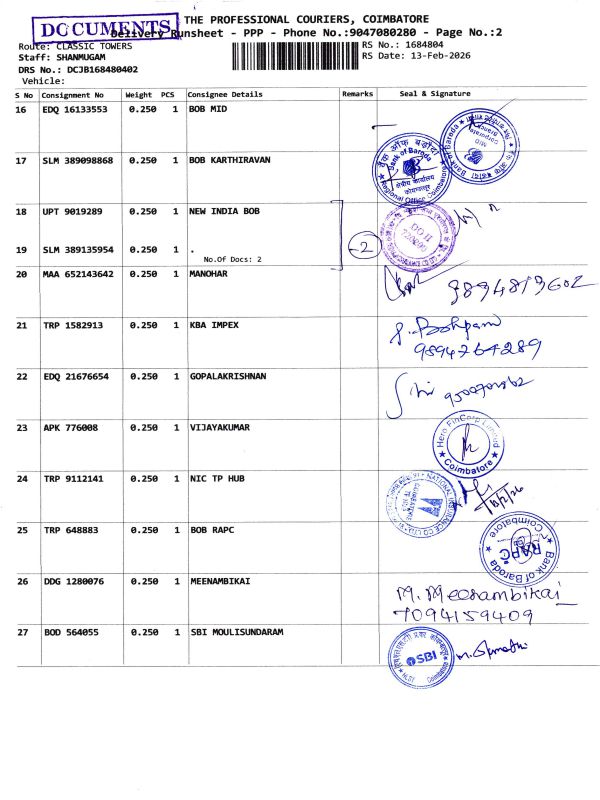 DOCUMENTS
THE PROFESSIONAL COURIERS, COIMBATORE
Delivery Runsheet - PPP - Phone No.:9047080280 - Page No.:2
Route: CLASSIC TOWERS
RS No.: 1684804
Staff: SHANMUGAM
RS Date: 13-Feb-2026
DRS No.: DCJB168480402
Vehicle:
S No Consignment No Weight PCS Consignee Details Remarks Seal & Signature
16 EDQ 16133553 0.250 1 BOB MID
17 SLM 389098868 0.250 1 BOB KARTHIRAVAN
Bank of Baroda
क्षेत्रीय कार्यालय
Regional Office, Coimbatore
18 UPT 9019289 0.250 1 NEW INDIA BOB
19 SLM 389135954 0.250 1 .
No.Of Docs: 2
2
20 MAA 652143642 0.250 1 MANOHAR
9894819602
21 TRP 1582913 0.250 1 KBA IMPEX
9894764289
22 EDQ 21676654 0.250 1 GOPALAKRISHNAN
23 APK 776008 0.250 1 VIJAYAKUMAR
Hero FinCorp Limited
Coimbatore
24 TRP 9112141 0.250 1 NIC TP HUB
25 TRP 648883 0.250 1 BOB RAPC
Coimbatore
RAPC
Bank of Baroda
26 DDG 1280076 0.250 1 MEENAMBIKAI
M. Meenambikai
7094159409
27 BOD 564055 0.250 1 SBI MOULISUNDARAM
SBI